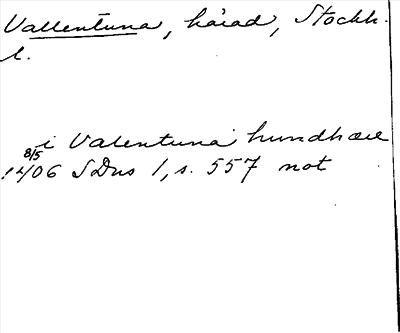 Vallentuna, härad, Stockh.
l.
i Valentuna hundhære
8/5
1406 SDns 1, s. 557 not